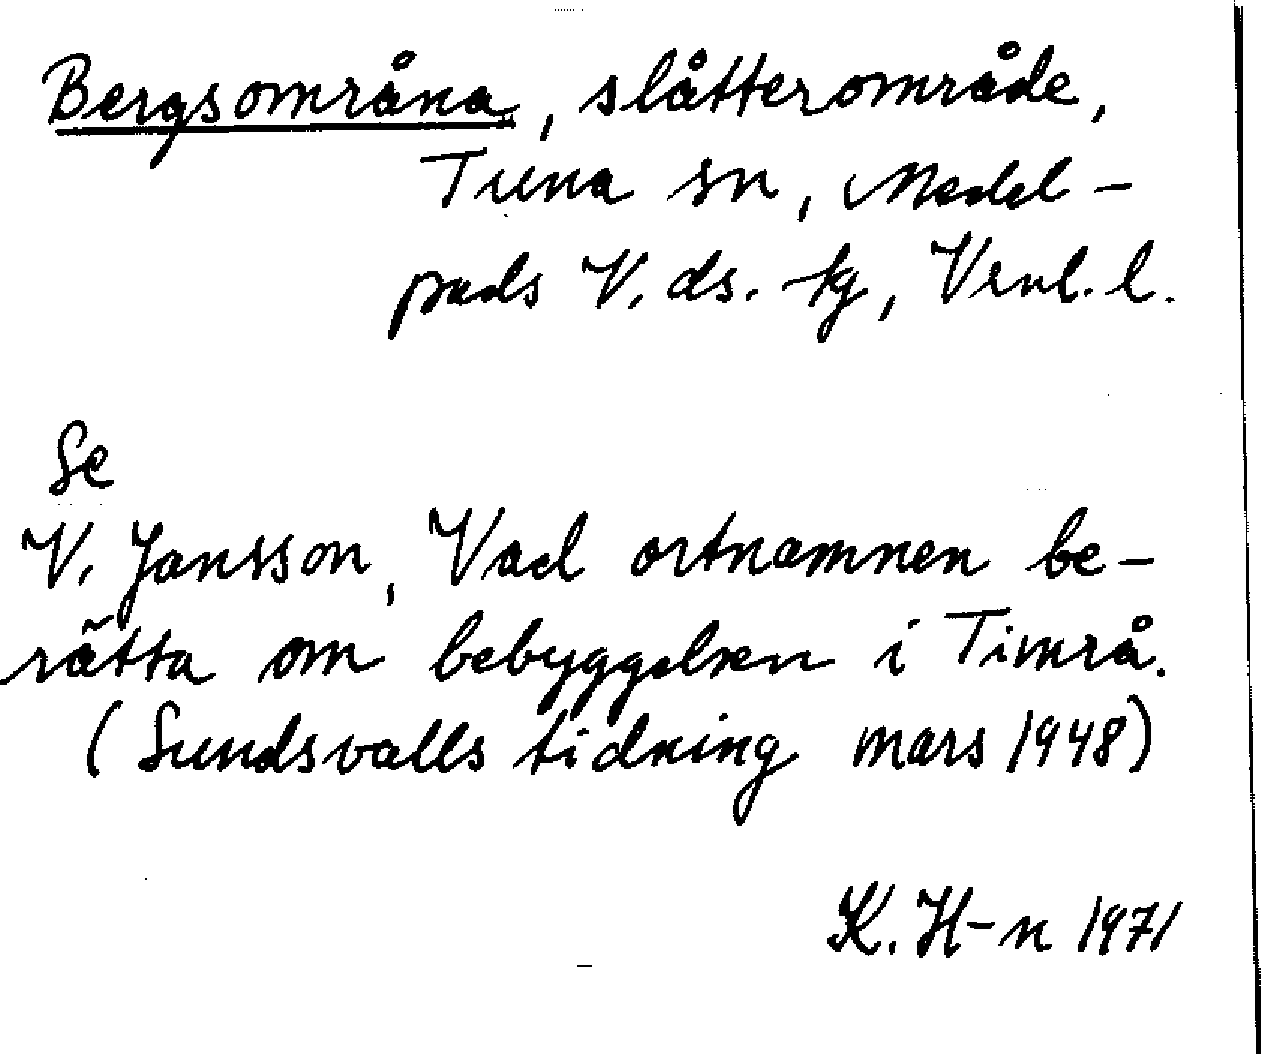 Bergsområna, slåtterområde,
Tuna sn, Medel-
pads V. ds. tg, Vsnl. l.
Se
V. Jansson, Vad ortnamnen be-
rätta om bebyggelsen i Timrå.
(Sundsvalls tidning mars 1948)
K. H-n 1971